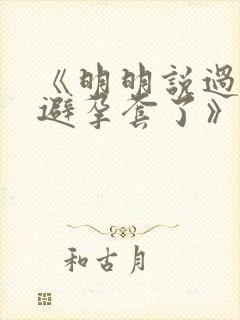 《明明說過
避孕套了》
和古月